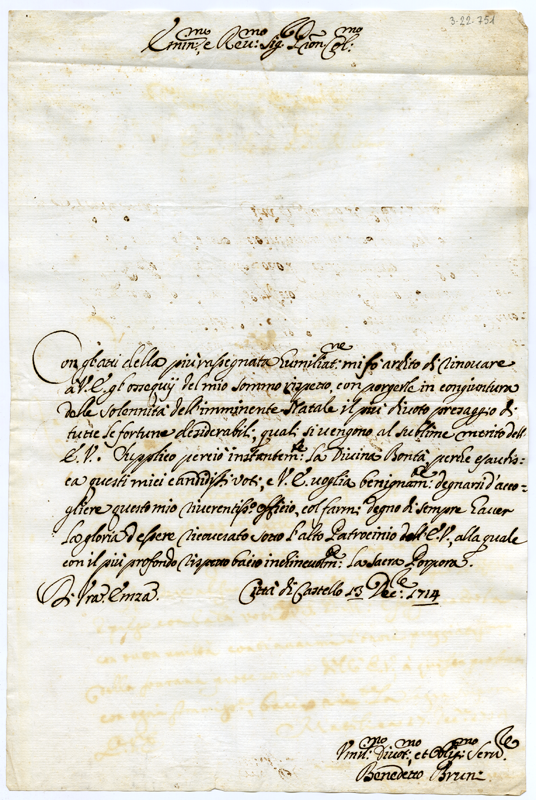 3-22-751
Emin:mo e Reu:mo Sig:re Pron Col:mo
Con gl'atti della più rassegnata Humiliat:ne mi fò ardito di rinouare
à V.E. gl'ossequij del mio sommo rispetto, con porgerle in congiuntura
delle solennità dell'imminente Natale il più diuoto presaggio di
tutte le fortune desiderabili, quali si uengono al sublime merito dell'
E.V. Supplico perciò instantem:te la Divina Bontà, perche esaudis-
ca questi miei candidi uoti, e V.E. uoglia benignam:te degnarsi d'acco-
gliere questo mio riuerentis:o officio, col farmi degno di sempre hauer
la gloria d'essere ricouerato sotto l'alto Patrocinio dell'E.V., alla quale
con il più profondo rispetto bacio inchineuolm:te la Sacra Porpora.
Di Vra Emza
Città di Castello 13 Dec:re 1714
Vmil:mo Diuot:mo et Oblig:mo Seru:re
Benedetto Bruni